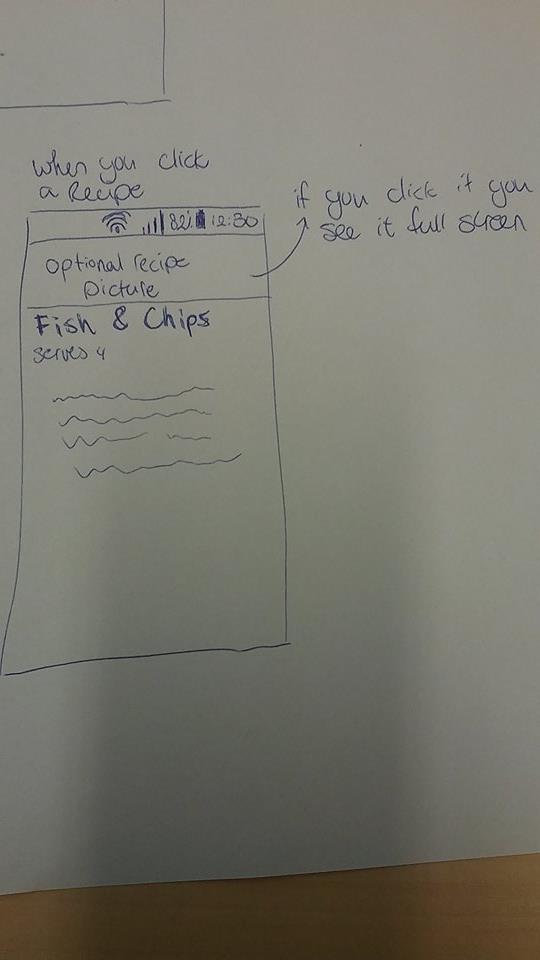 when you click
a Recipe
82% 12:30
optional recipe
picture
if you click it you
see it full screen
Fish & Chips
serves 4